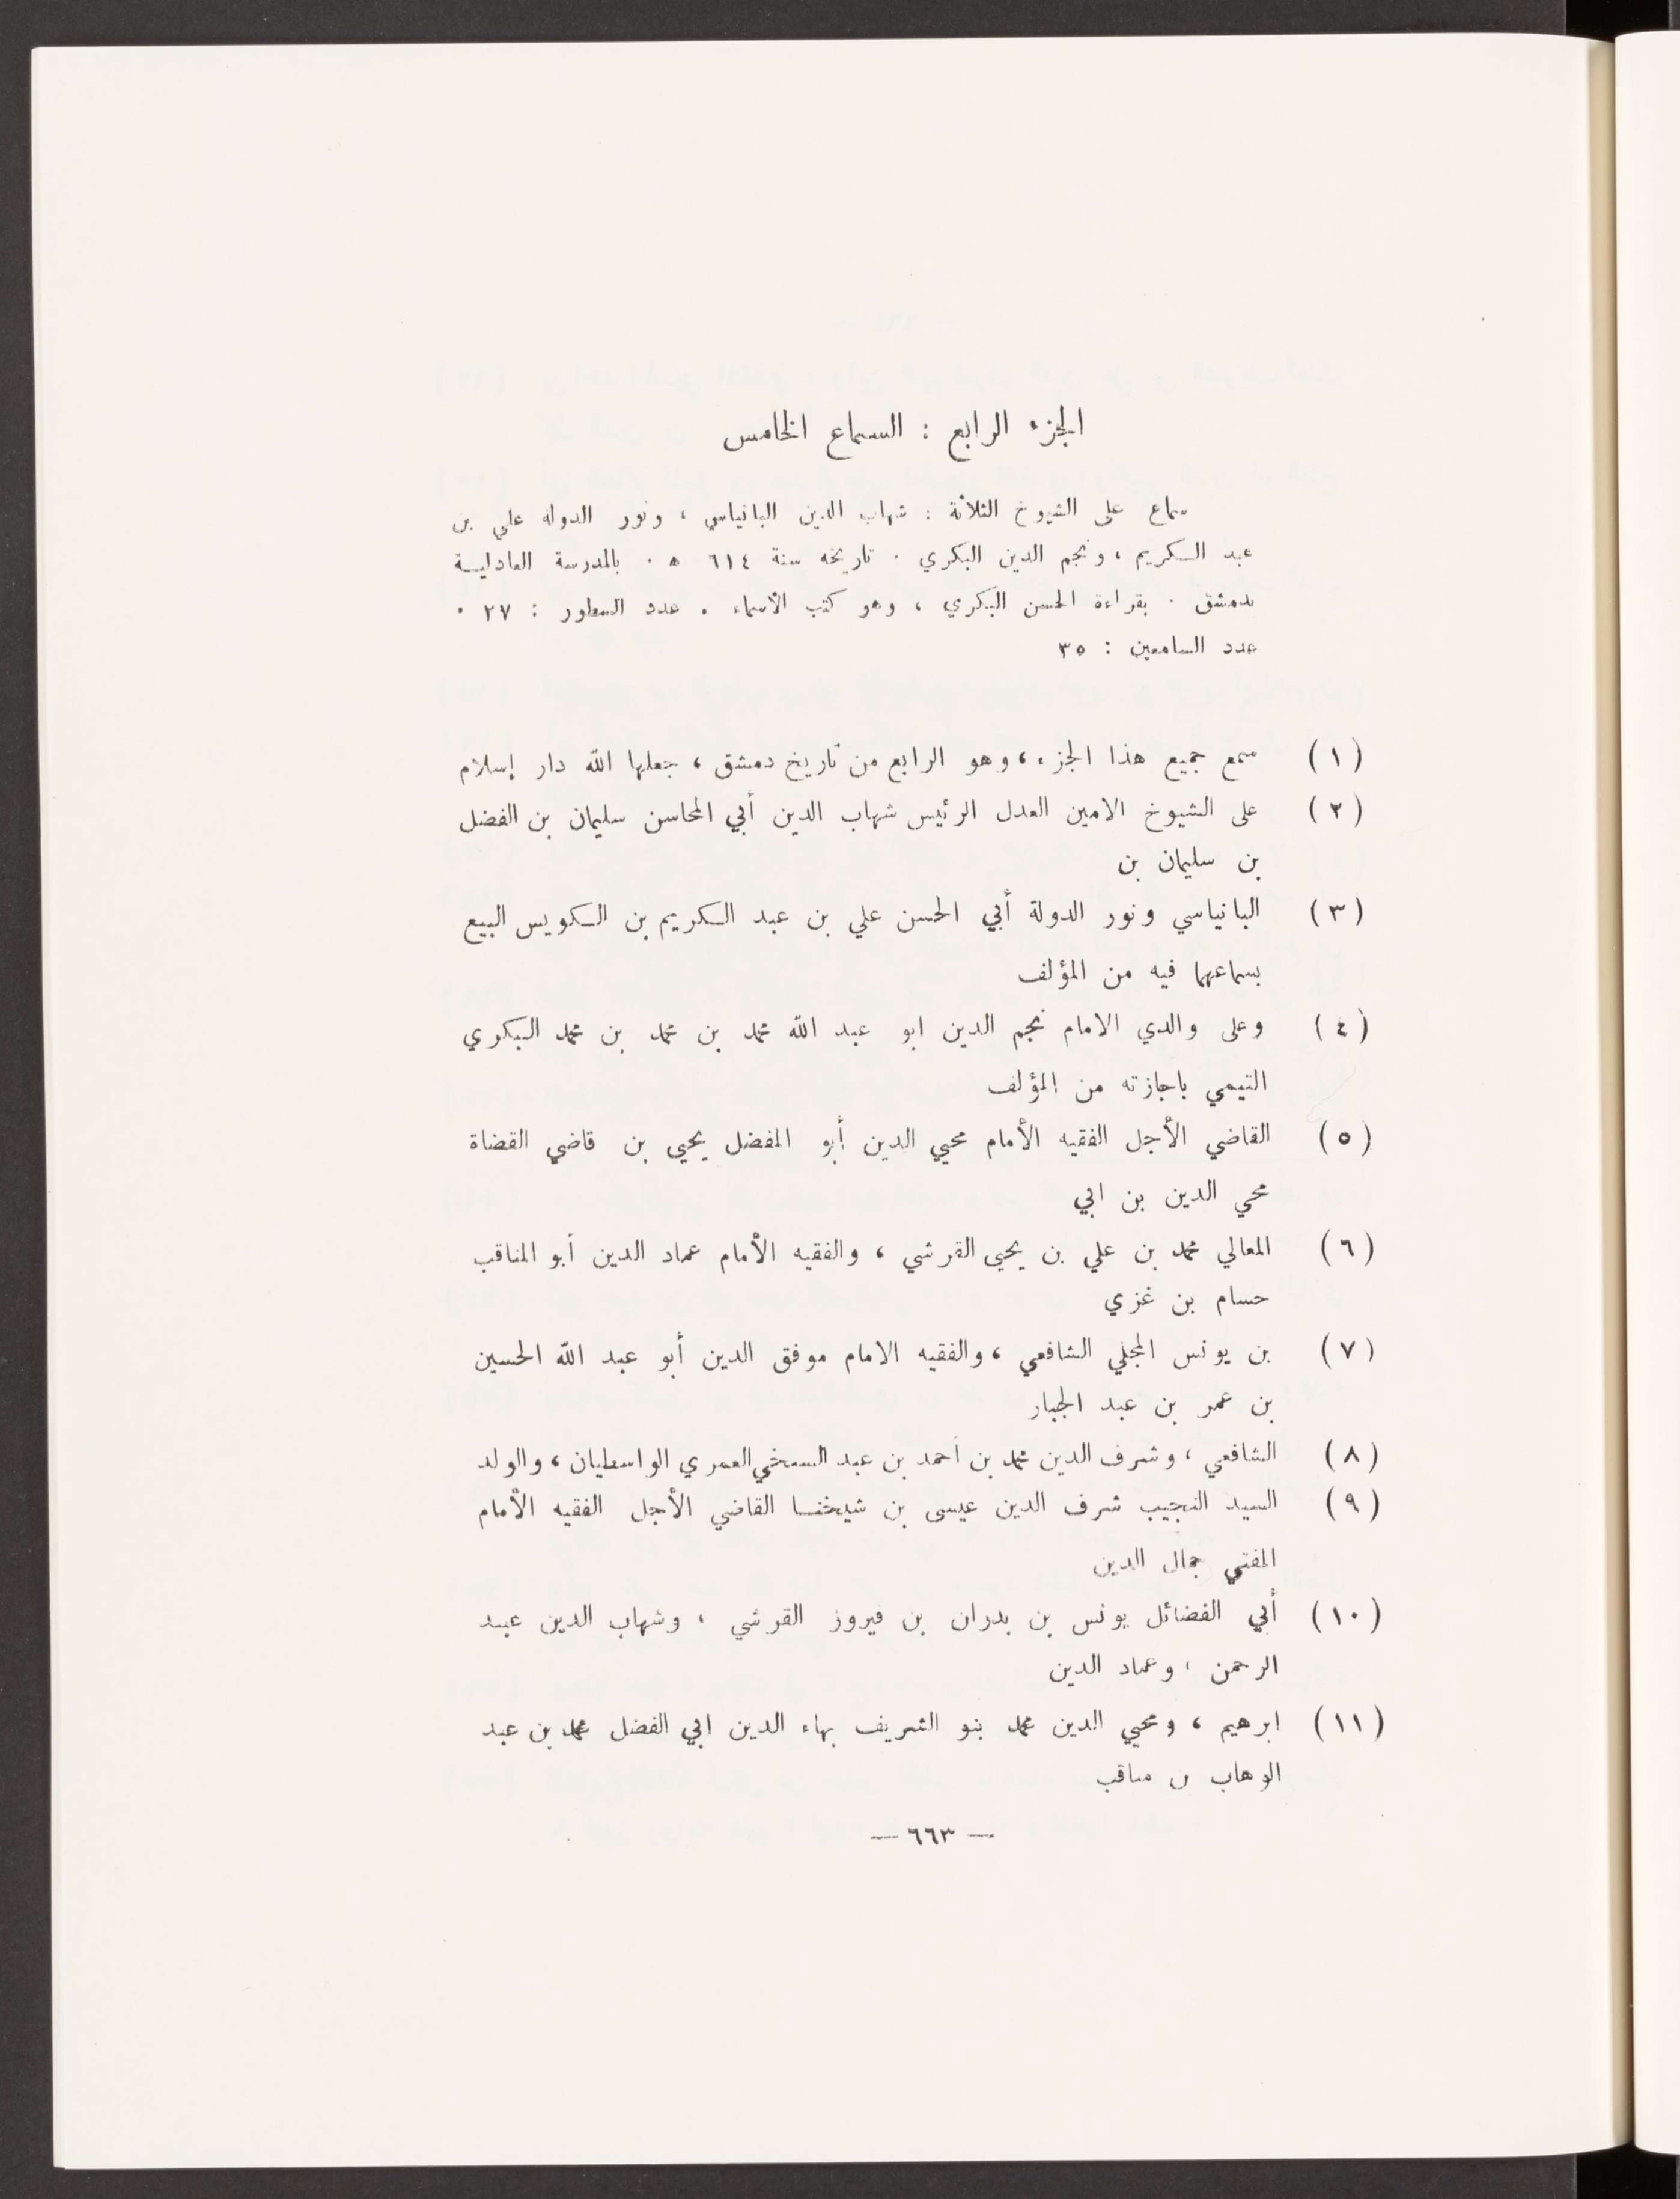 الجزء الرابع : السماع الخامس
سماع على الشيوخ الثلاثة : شهاب الدين البانياسي ، ونور الدولة علي بن
عبد الكريم ، ونجم الدين البكري . تاريخه سنة ٦١٤ ه . بالمدرسة العادلية
بدمشق . بقراءة الحسن البكري ، وهو كتب الأسماء . عدد السطور : ٢٧ .
عدد السامعين : ٣٥
(١) سمع جميع هذا الجزء ، وهو الرابع من تاريخ دمشق ، جعلها الله دار إسلام
(٢) على الشيوخ الامين العدل الرئيس شهاب الدين أبي المحاسن سليمان بن الفضل
بن سليمان بن
(٣) البانياسي ونور الدولة أبي الحسن علي بن عبد الكريم بن الكويس البيع
بسماعهما فيه من المؤلف
(٤) وعلى والدي الامام نجم الدين ابو عبد الله محمد بن محمد بن محمد البكري
التيمي باجازته من المؤلف
(٥) القاضي الأجل الفقيه الأمام محيي الدين أبو المفضل يحيى بن قاضي القضاة
محي الدين بن ابي
(٦) المعالي محمد بن علي بن يحيى القرشي ، والفقيه الأمام عماد الدين أبو المناقب
حسام بن غزي
(٧) بن يونس المجلي الشافعي ، والفقيه الامام موفق الدين أبو عبد الله الحسين
بن عمر بن عبد الجبار
(٨) الشافعي ، وشرف الدين محمد بن أحمد بن عبد السخي العمري الواسطيان ، والولد
(٩) السيد النجيب شرف الدين عيسى بن شيخنا القاضي الأجل الفقيه الأمام
المفتي جمال الدين
(١٠) أبي الفضائل يونس بن بدران بن فيروز القرشي ، وشهاب الدين عبد
الرحمن ، وعماد الدين
(١١) ابرهيم ، ومحيي الدين محمد بنو الشريف بهاء الدين ابي الفضل محمد بن عبد
الوهاب ں مناقب
— ٦٦٣ —